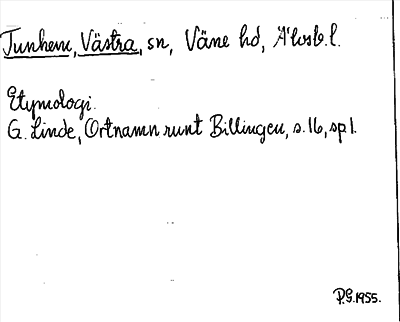 Tunhem, Västra, sn, Väne hd, Älvsb. l.
Etymologi.
G. Linde, Ortnamn runt Billingen, s. 16, sp 1.
P.G. 1955.